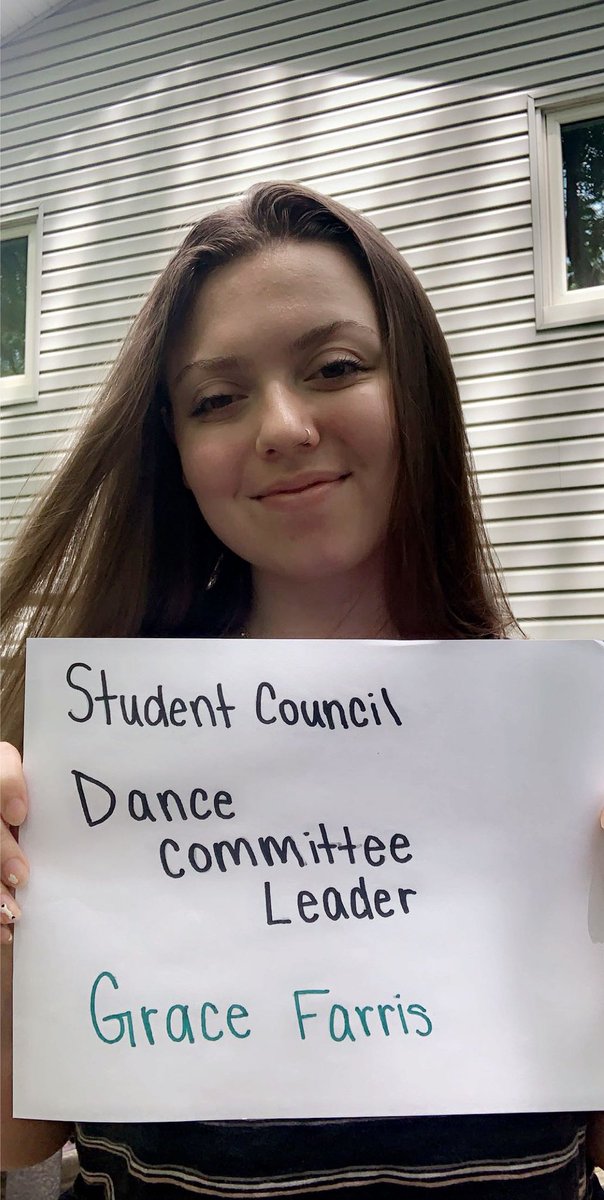 Student Council
Dance
committee
Leader
Grace Farris